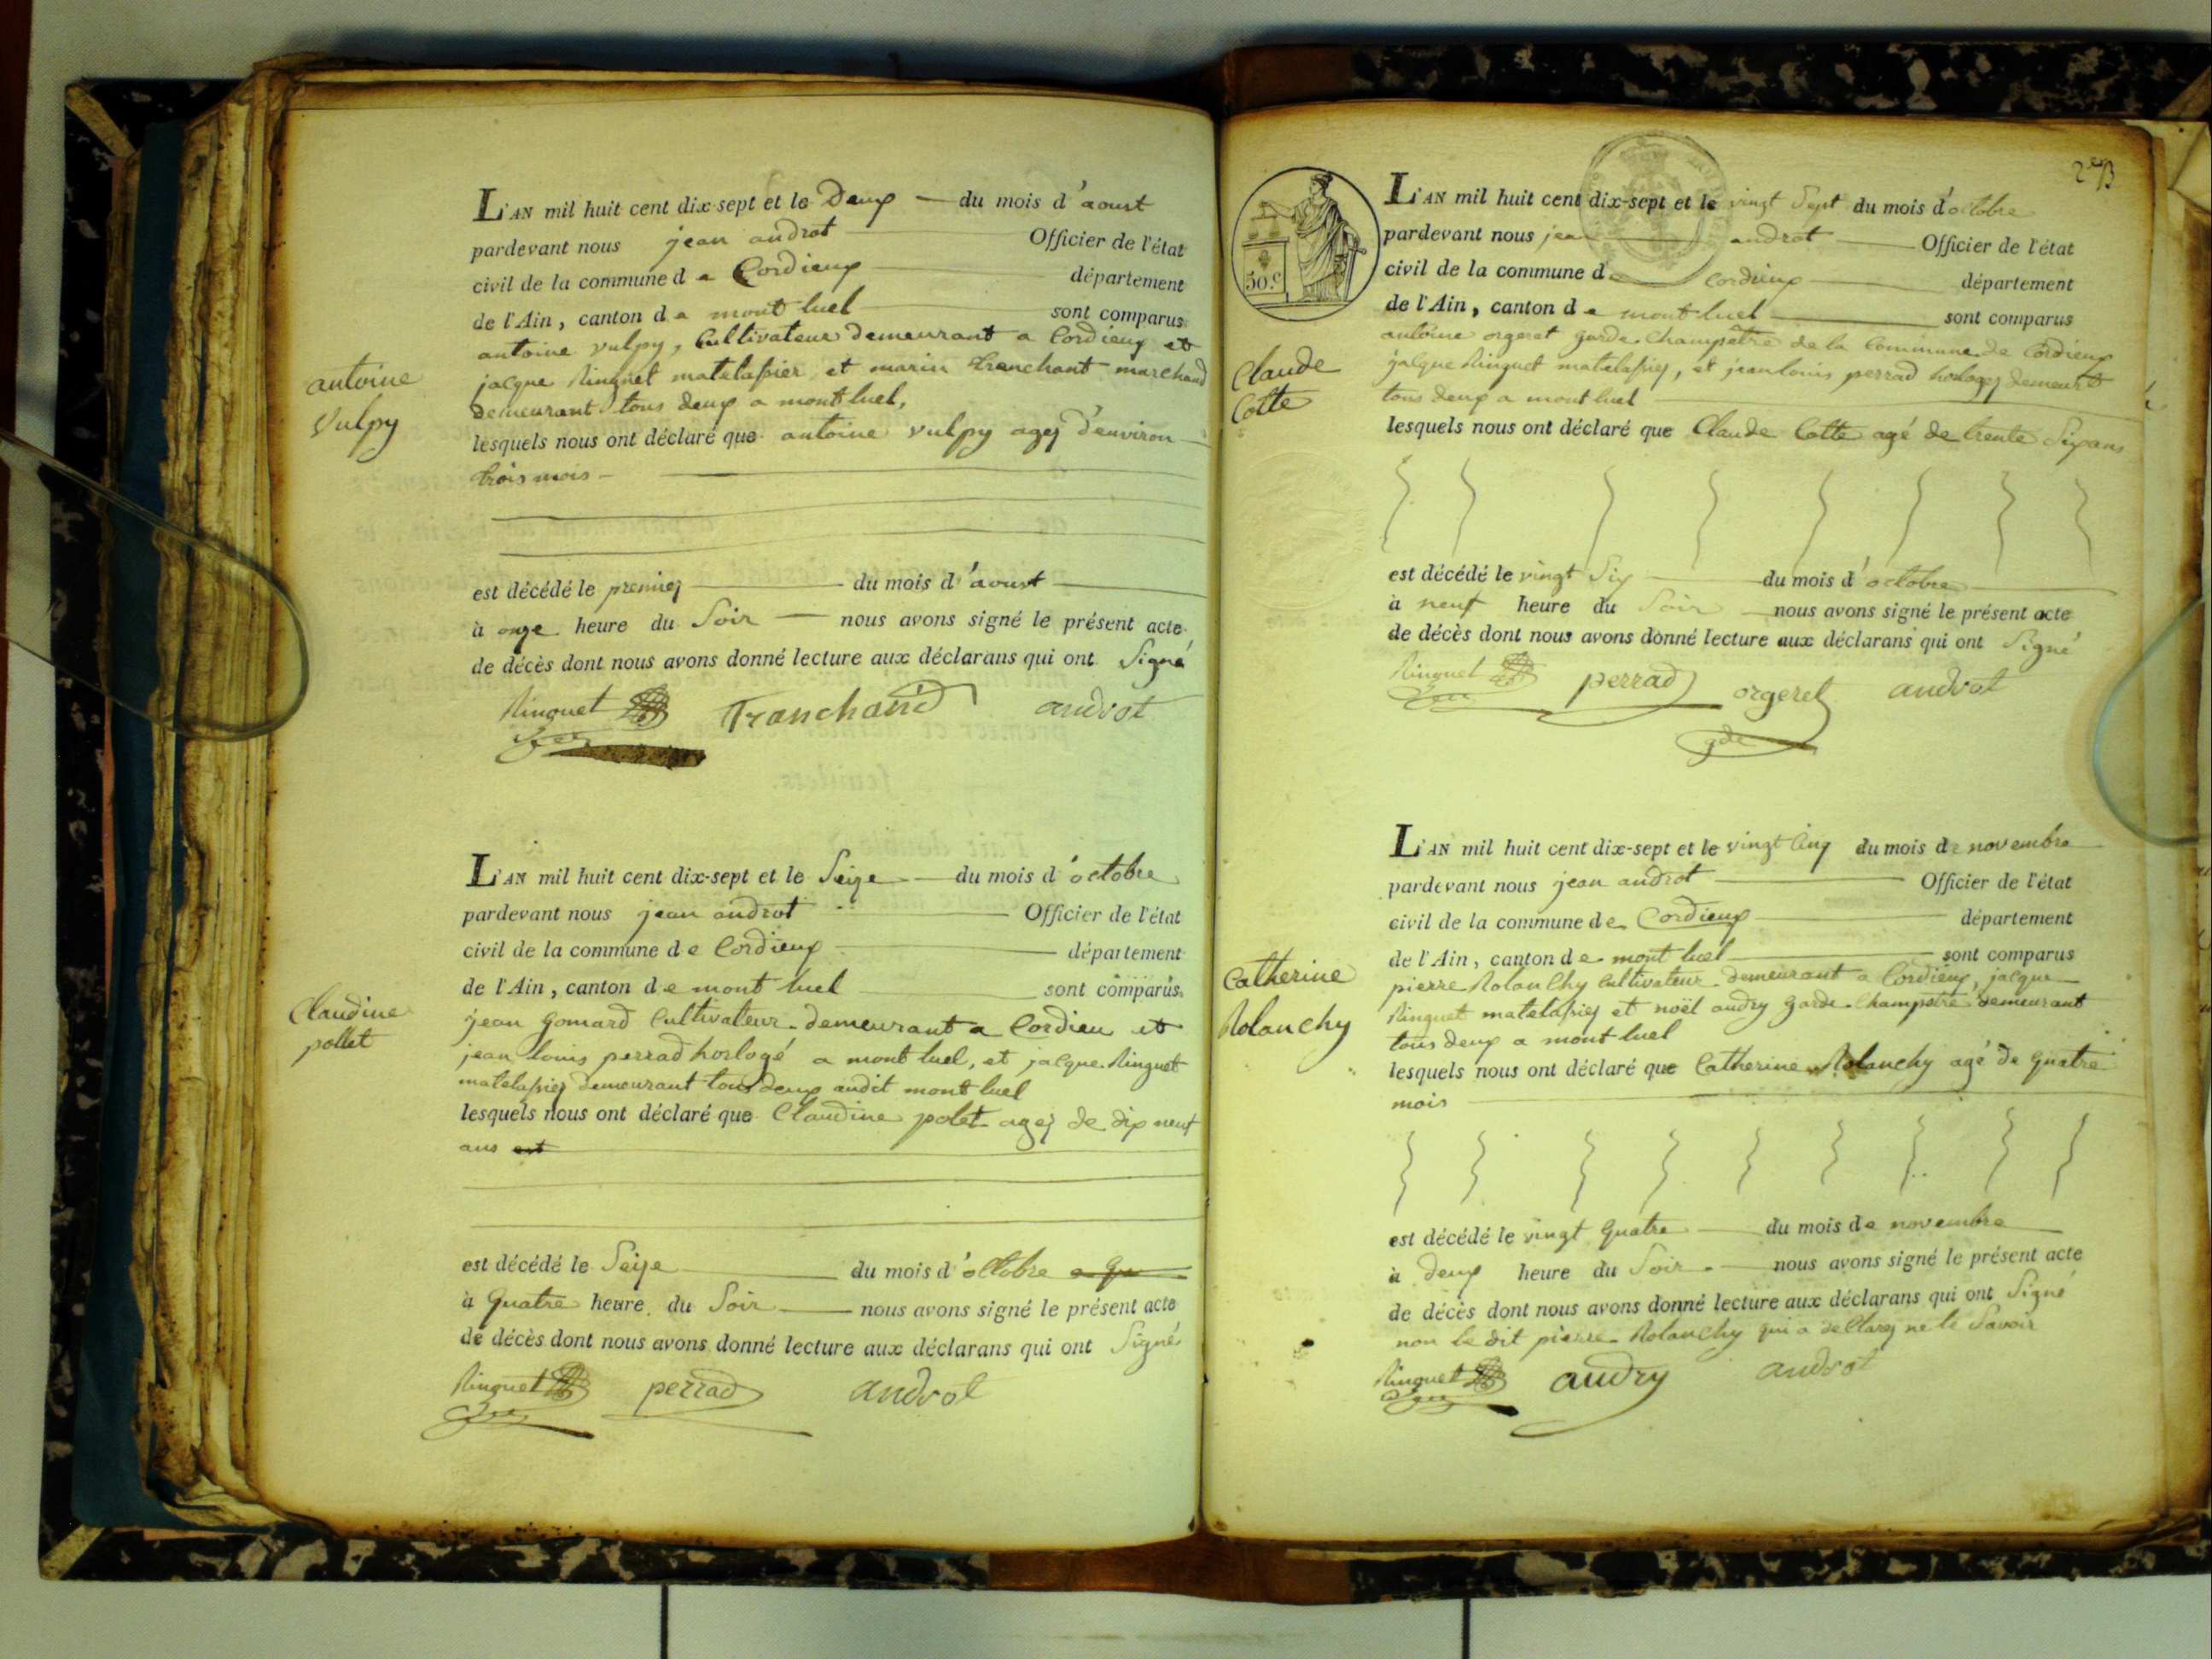 L'AN mil huit cent dix-sept et le Deux du mois d'aoust
pardevant nous jean androt Officier de l'état
civil de la commune de Cordieux département
de l'Ain, canton de mont luel sont comparus
antoine vulpy, Cultivateur demeurant a Cordieux et
jacque Ringuet matelassier et marin tranchant marchand
demeurant tous deux a mont luel,
antoine
Vulpy
lesquels nous ont déclaré que antoine vulpy agez d'environ
trois mois
est décédé le premiez du mois d'aoust
à onze heure du Soir nous avons signé le présent acte
de décès dont nous avons donné lecture aux déclarans qui ont Signé
Ringuet Tranchand androt
L'AN mil huit cent dix-sept et le Seize du mois d'octobre
pardevant nous jean androt Officier de l'état
civil de la commune de Cordieux département
de l'Ain, canton de mont luel sont comparus
Claudine
pollet
jean Gomard Cultivateur demeurant a Cordieu et
jean louis perrad horlogé a mont luel, et jacque Ringuet
matelassiez demeurant tous deux audit mont luel
lesquels nous ont déclaré que Claudine polet agez de dix neuf
ans est
est décédé le Seize du mois d'octobre a qu
à Quatre heure du Soir nous avons signé le présent acte
de décès dont nous avons donné lecture aux déclarans qui ont Signé
Ringuet perrad androt
50 c
L'AN mil huit cent dix-sept et le vingt Sept du mois d'octobre
pardevant nous jean androt Officier de l'état
civil de la commune de Cordieux département
de l'Ain, canton de mont luel sont comparus
antoine orgeret garde Champêtre de la Commune de Cordieux
jacque Ringuet matelassiez, et jean louis perrad horlogez demeurt
tous deux a mont luel
Claude
Cotte
lesquels nous ont déclaré que Claude Cotte agé de trente Six ans
est décédé le vingt Six du mois d'octobre
à neuf heure du Soir nous avons signé le présent acte
de décès dont nous avons donné lecture aux déclarans qui ont Signé
Ringuet perrad orgeret androt
gde
L'AN mil huit cent dix-sept et le vingt Cinq du mois de novembre
pardevant nous jean androt Officier de l'état
civil de la commune de Cordieux département
de l'Ain, canton de mont luel sont comparus
Catherine
Rolanchy
pierre Rolanchy Cultivateur demeurant a Cordieux, jacque
Ringuet matelassiez et noël audry garde Champetre demeurant
tous deux a mont luel
lesquels nous ont déclaré que Catherine Rolanchy agé de quatre
mois
est décédé le vingt Quatre du mois de novembre
à deux heure du Soir nous avons signé le présent acte
de décès dont nous avons donné lecture aux déclarans qui ont Signé
non le dit pierre Rolanchy qui a declarez ne le Savoir
Ringuet audry androt